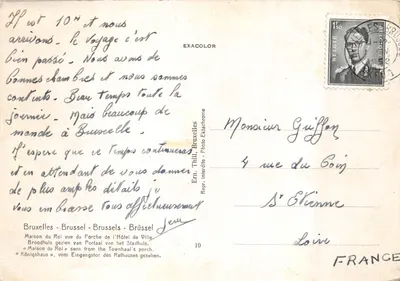 Il est 10H et nous
arrivons. le voyage s'est
bien passé. Nous avons de
bonnes chambres et nous sommes
contents. Beau temps toute la
journée. Mais beaucoup de
monde à Bruxelle.
J'espère que ce temps continuera
et en attendant de vous donner
de plus amples détails
vous embrasse tous affectueusement
EXACOLOR
Ern. Thill, Bruxelles
Repr. interdite - Photo Ektachrome
BELGIE
Monsieur Griffon
4 rue du Coin
St Etienne
Loire
FRANCE
Bruxelles - Brussel - Brussels - Brüssel
Maison du Roi vue du Porche de l'Hôtel de Ville.
Broodhuis gezien van Portaal van het Stadhuis.
« Maison du Roi » seen from the Townhall's porch.
« Königshaus », vom Eingangstor des Rathauses gesehen.
10